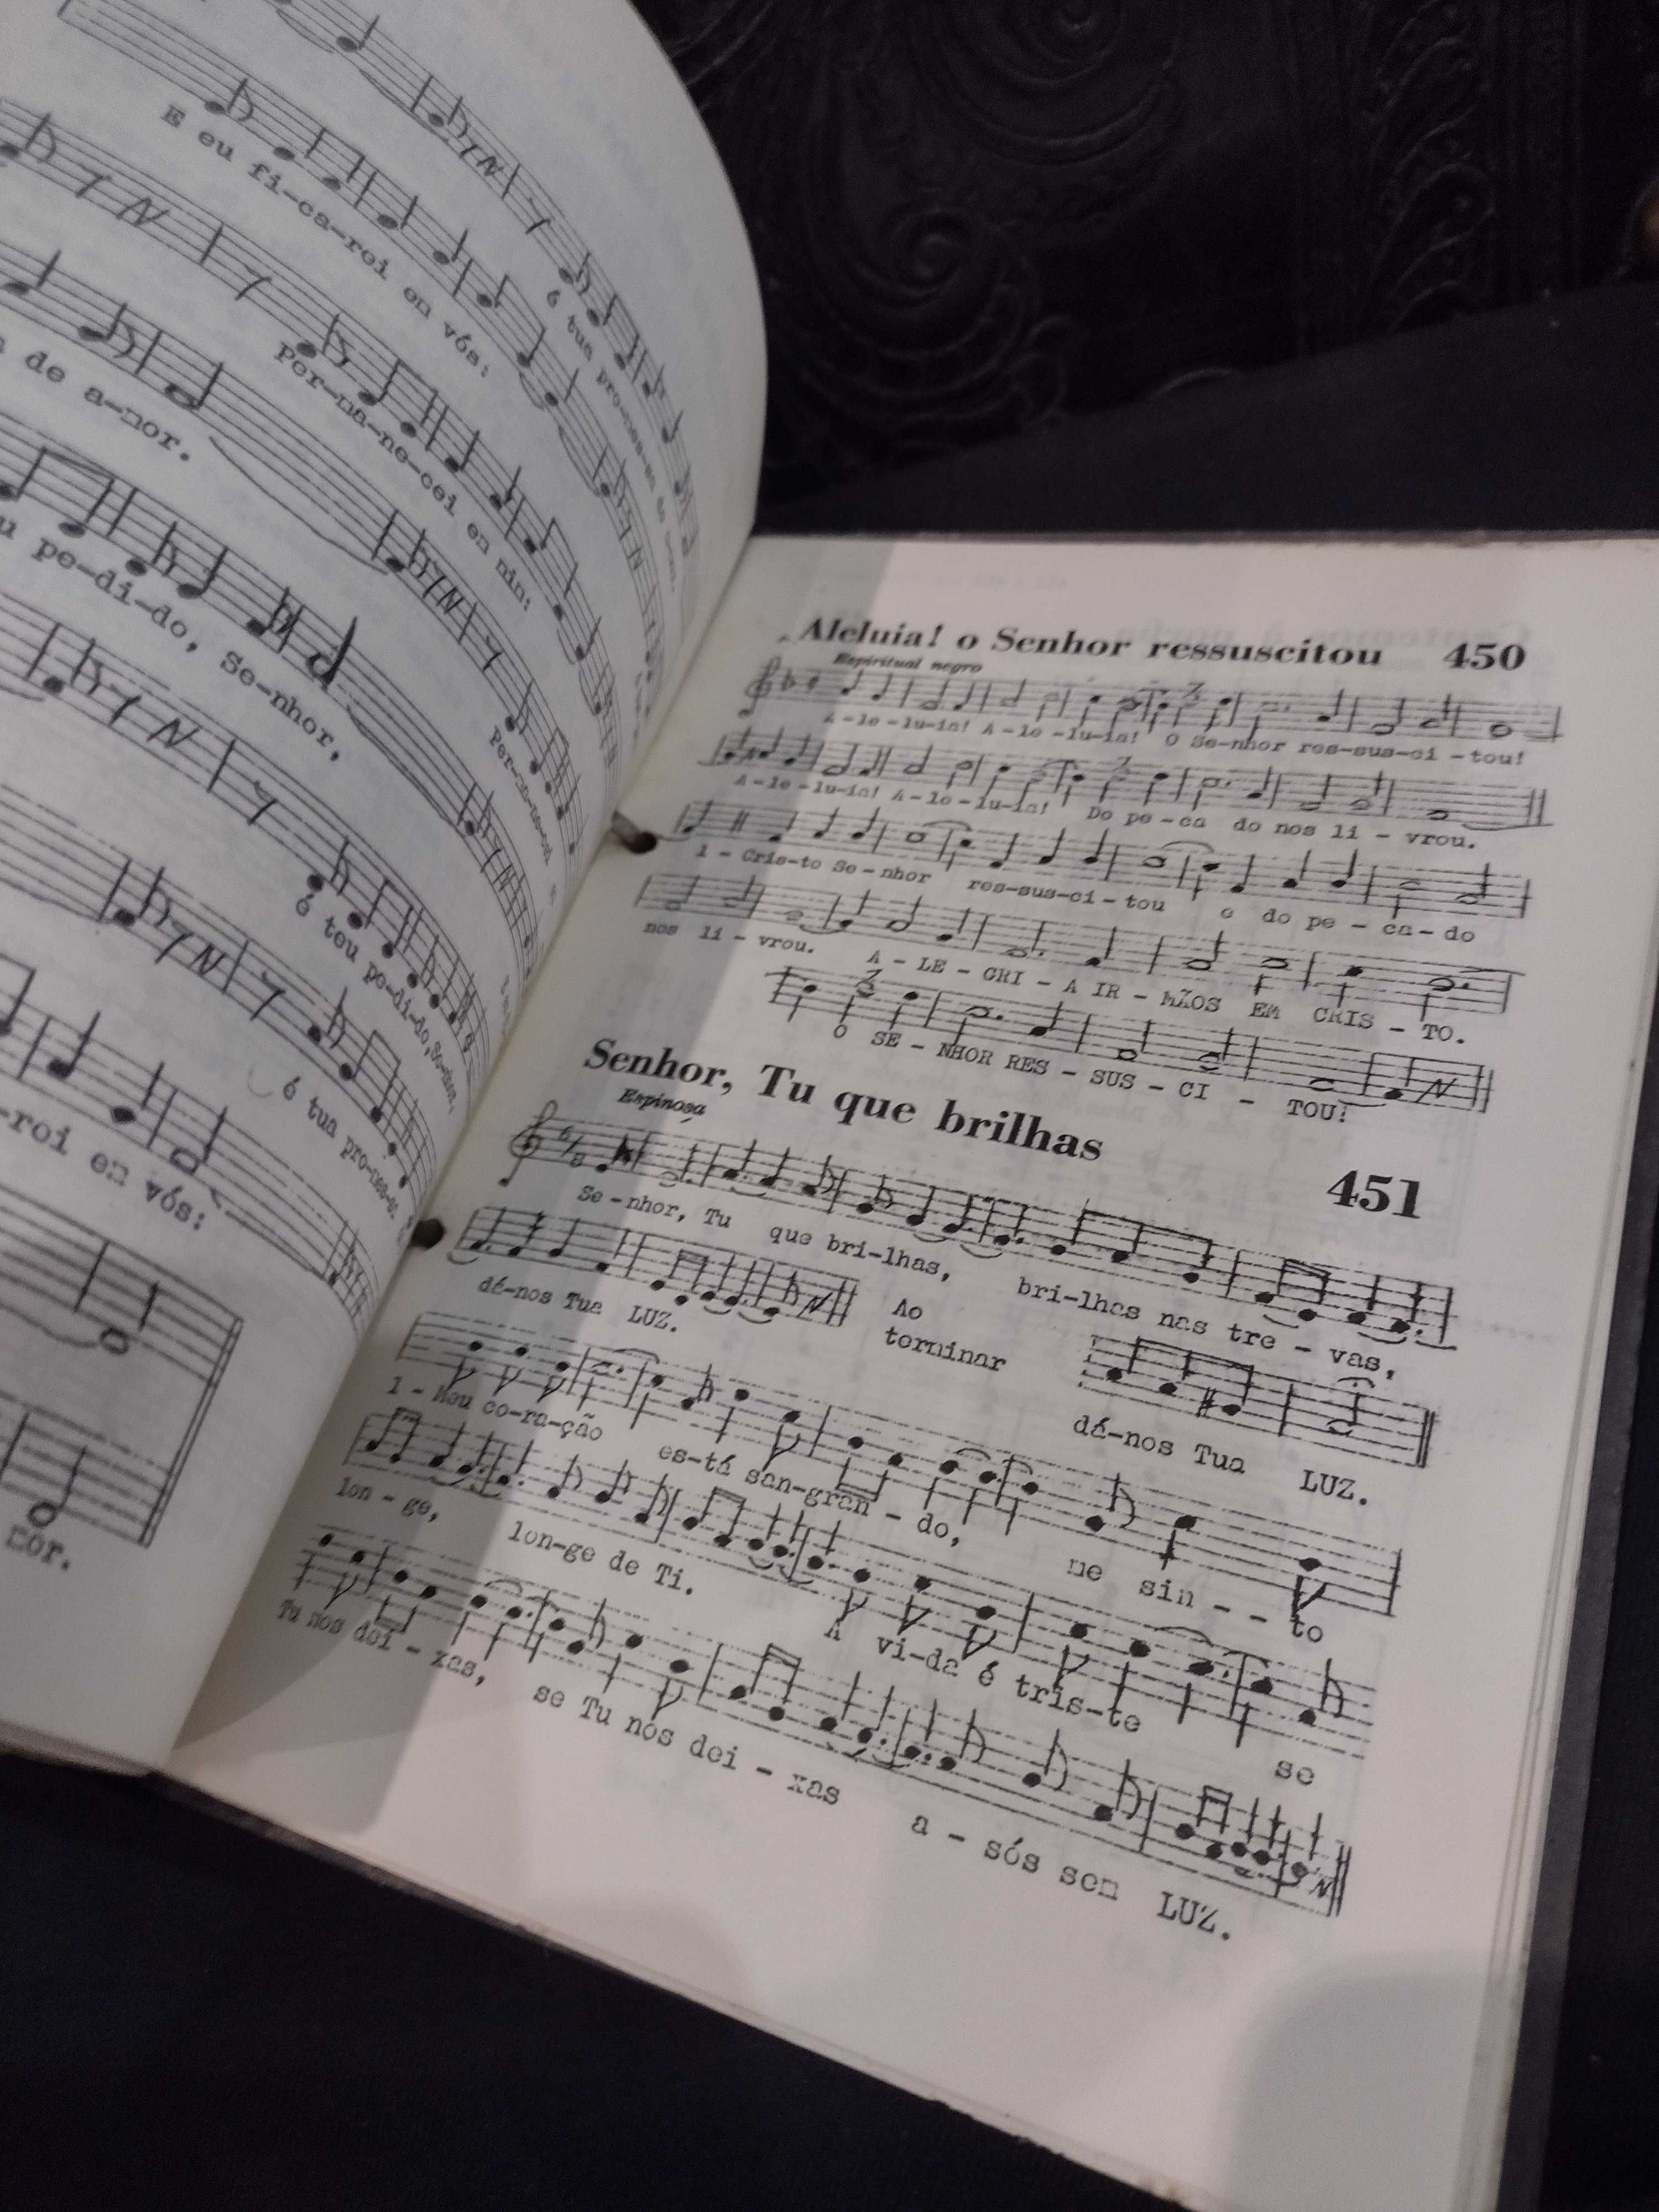 E eu fi-ca-rei em vós:
é tua pro-mes-sa de
Per-ma-ne-cei em mim:
de a-mor.
pe-di-do, Se-nhor,
Per-ma-ne-cei
é teu pe-di-do, Se-nhor,
é tua pro-mes-sa
-rei em vós:
mor.
Aleluia! o Senhor ressuscitou 450
Espiritual negro
A-le-lu-ia! A-le-lu-ia! O Se-nhor res-sus-ci-tou!
A-le-lu-ia! A-le-lu-ia! Do pe-ca do nos li-vrou.
1-Cris-to Se-nhor res-sus-ci-tou e do pe-ca-do
nos li-vrou. A-LE-GRI-A IR-MÃOS EM CRIS-TO.
O SE-NHOR RES-SUS-CI-TOU!
Senhor, Tu que brilhas 451
Espinosa
6/8
Se-nhor, Tu que bri-lhas, bri-lhas nas tre-vas,
dá-nos Tua LUZ. Ao terminar dá-nos Tua LUZ.
1-Meu co-ra-ção es-tá san-gran-do, me sin--to
lon-ge, lon-ge de Ti. A vi-da é tris-te se
Tu nos dei-xas, se Tu nos dei-xas a-sós sem LUZ.